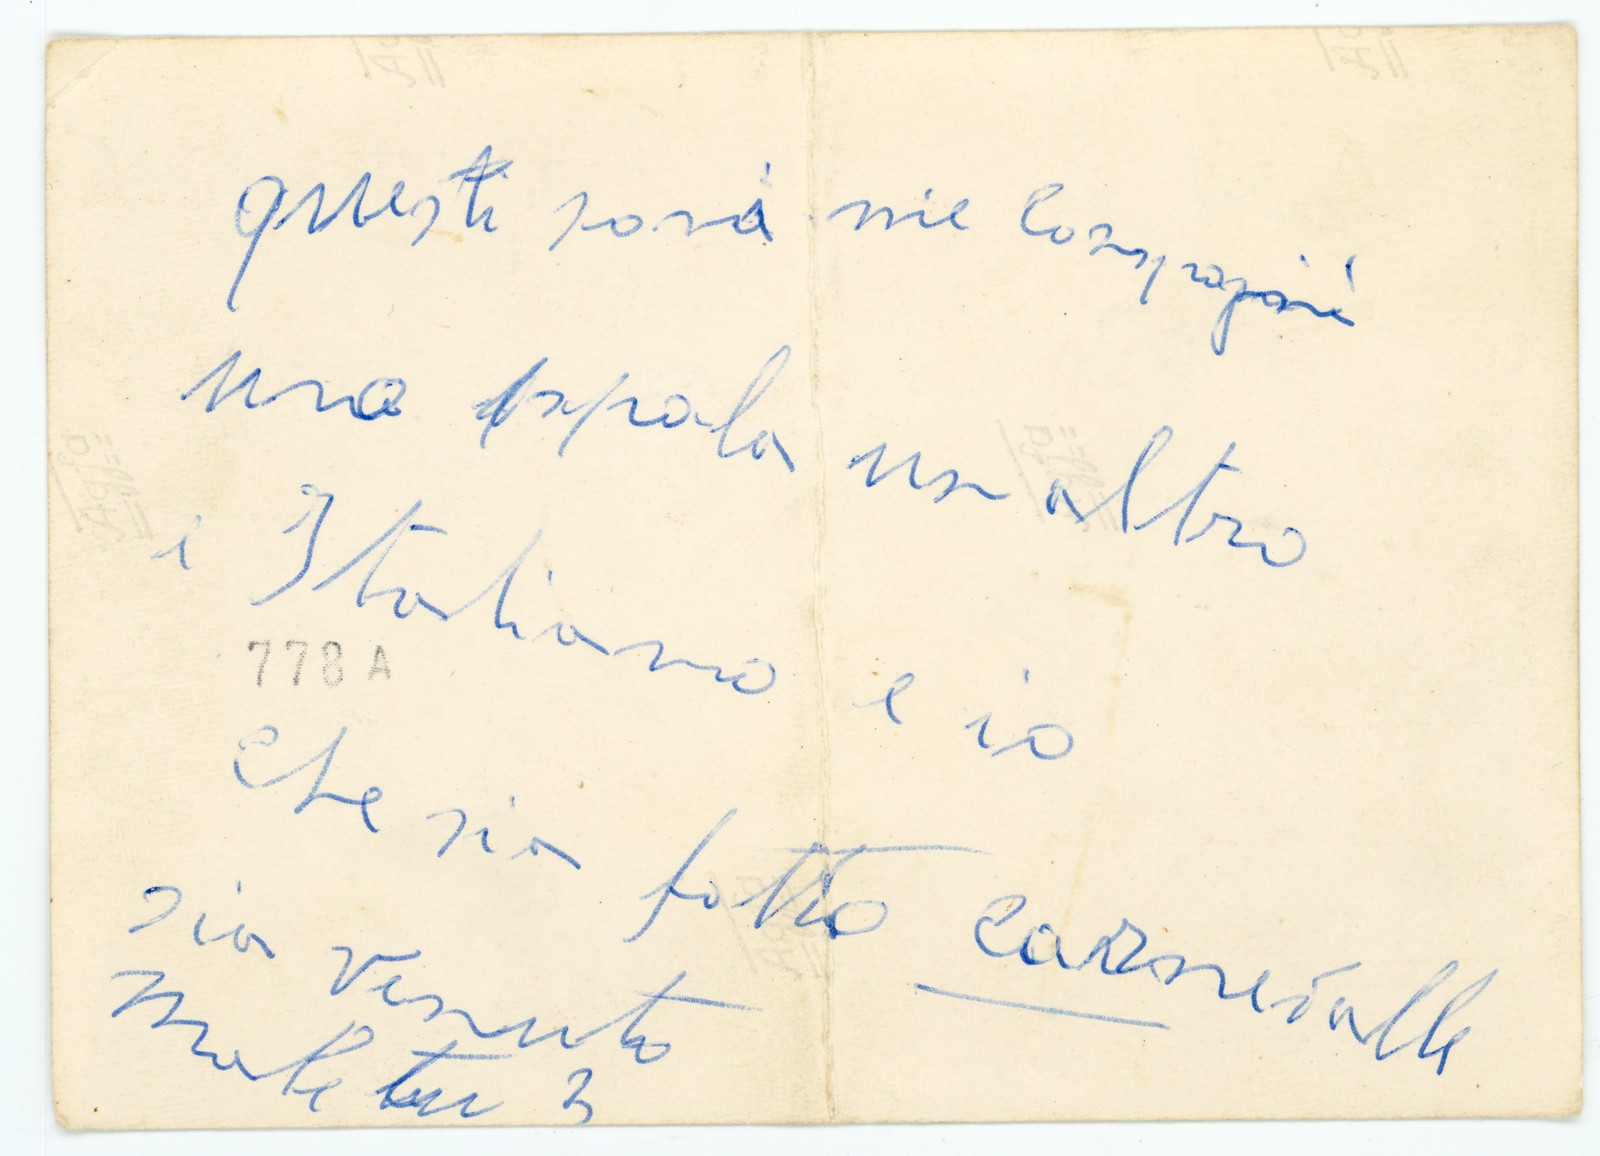 questi sonà mie Compagni
una spala un altro
e Italiano e io
778 A
che sia fatto carnevalle
sia venuto
male tu